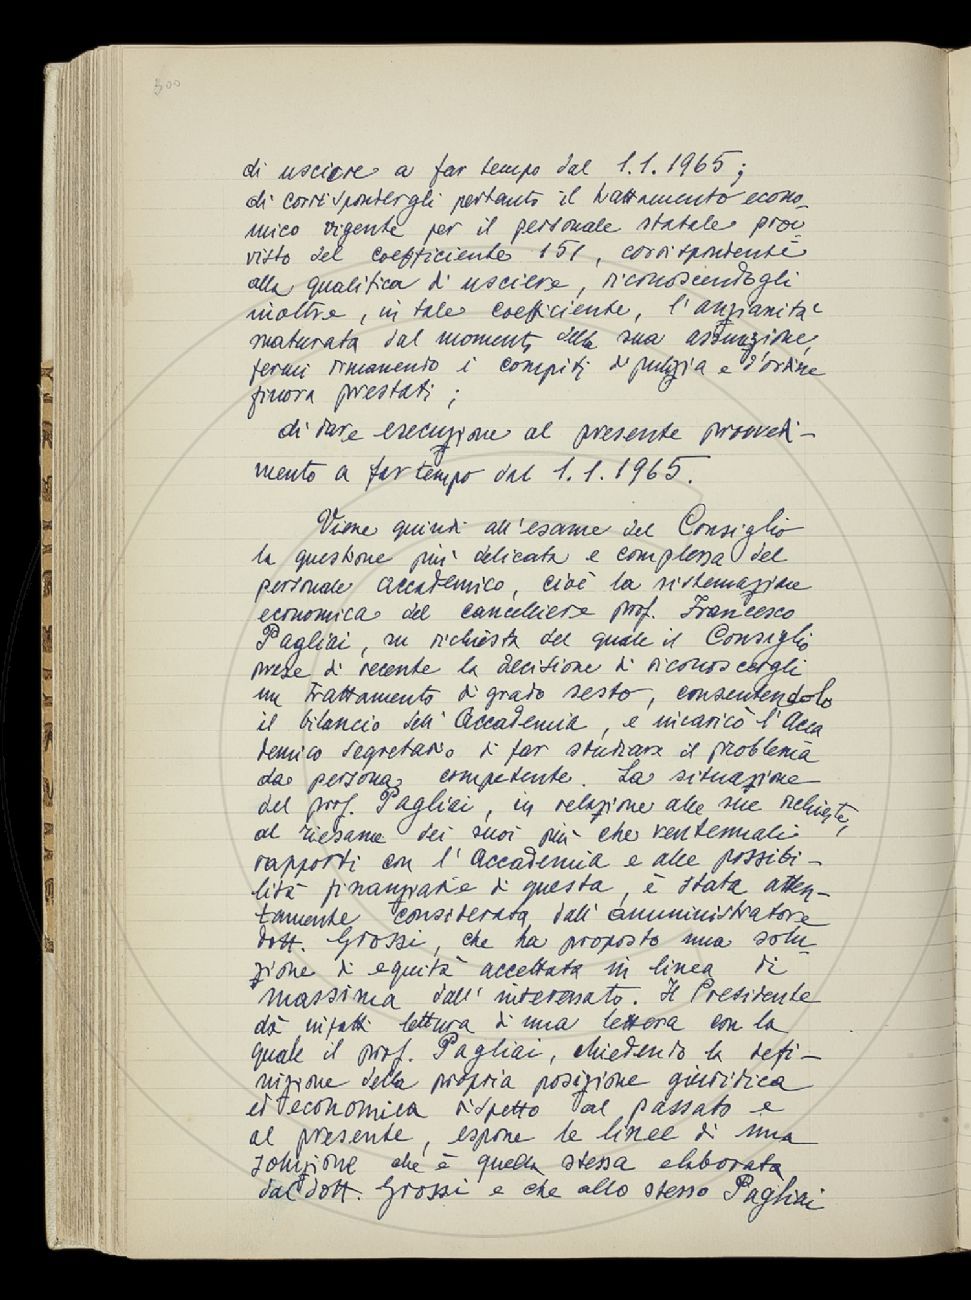 300
di usciere a far tempo dal 1.1.1965;
di corrispondergli pertanto il trattamento econo-
mico vigente per il personale statale prov-
visto del coefficiente 151, corrispondente
alla qualifica di usciere, riconoscendogli
inoltre, in tale coefficiente, l'anzianità
maturata dal momento della sua assunzione,
fermi rimanendo i compiti di pulizia e d'ordine
finora prestati;
di dare esecuzione al presente provvedi-
mento a far tempo dal 1.1.1965.
Viene quindi all'esame del Consiglio
la questione più delicata e complessa del
personale accademico, cioè la sistemazione
economica del cancelliere prof. Francesco
Pagliai, su richiesta del quale il Consiglio
prese di recente la decisione di riconoscergli
un trattamento di grado sesto, consentendolo
il bilancio dell'Accademia, e incaricò l'Acca
demico Segretario di far studiare il problema
da persona competente. La situazione
del prof. Pagliai, in relazione alle sue richieste,
al riesame dei suoi più che ventennali
rapporti con l'Accademia e alle possibi-
lità finanziarie di questa, è stata atten-
tamente considerata dall'amministratore
dott. Grossi, che ha proposto una solu-
zione di equità accettata in linea di
massima dall'interessato. Il Presidente
dà infatti lettura di una lettera con la
quale il prof. Pagliai, chiedendo la defi-
nizione della propria posizione giuridica
ed economica rispetto al passato e
al presente, espone le linee di una
soluzione che è quella stessa elaborata
dal dott. Grossi e che allo stesso Pagliai